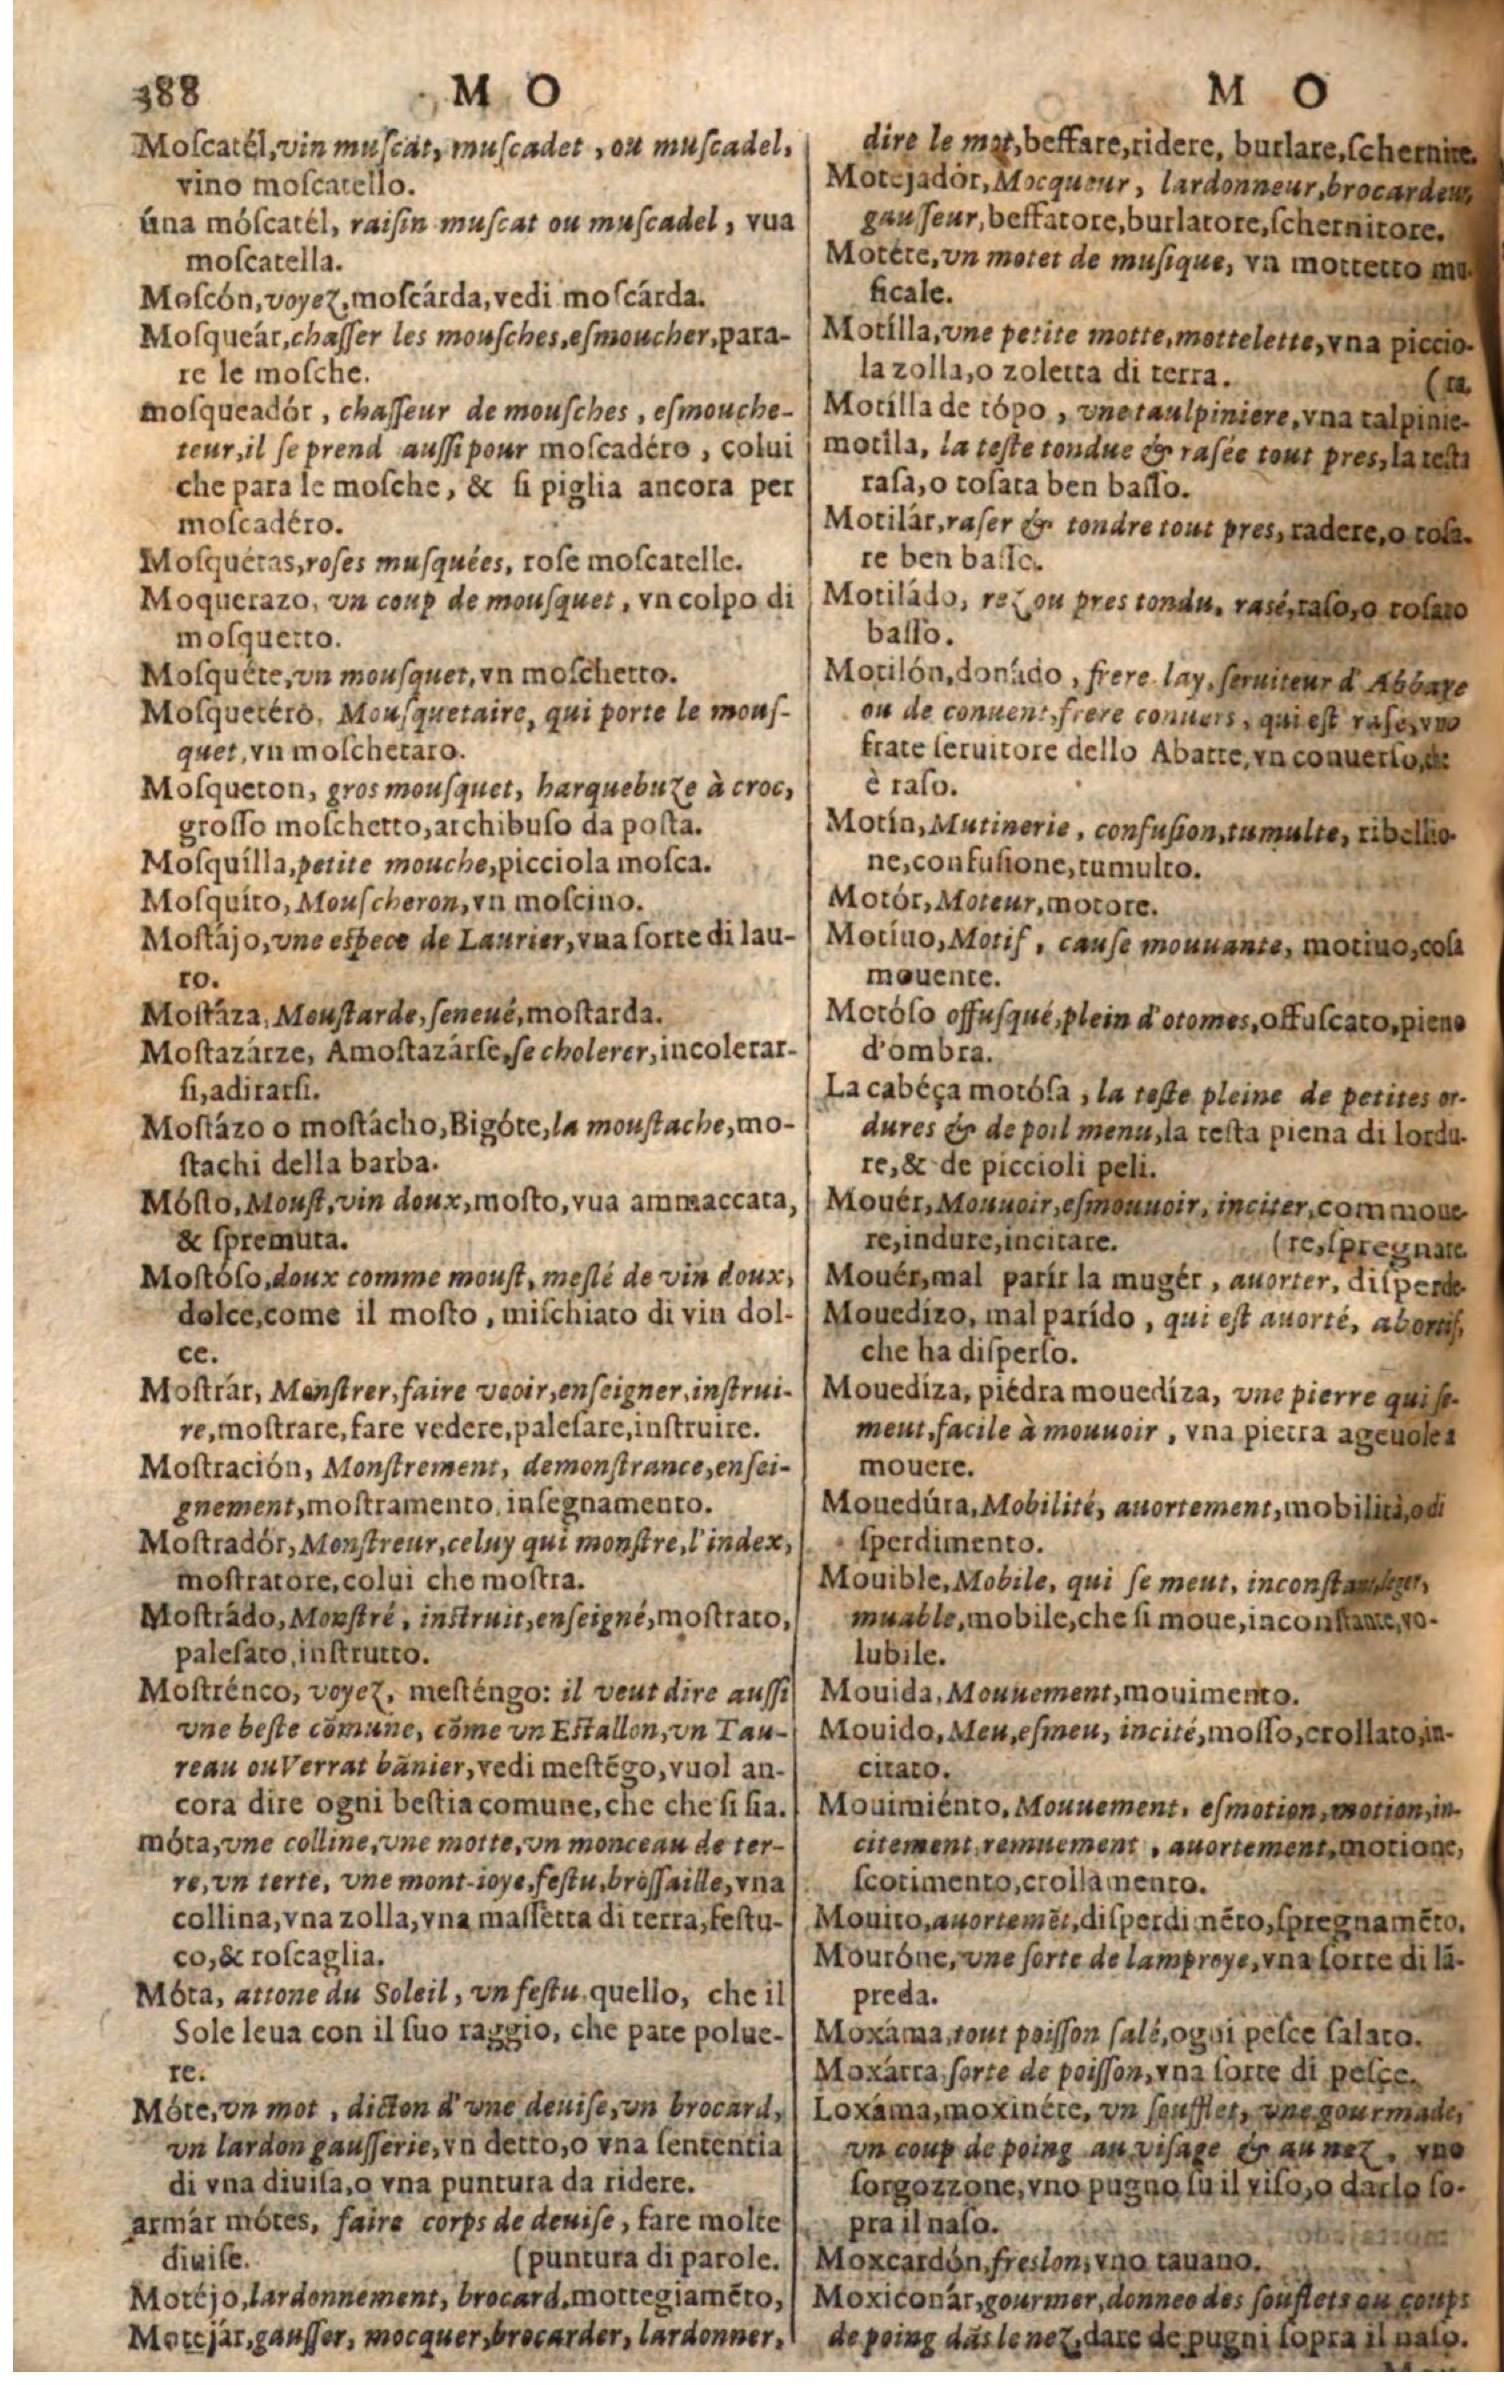 388 M O
M O
Moſcatél, vin muſcat, muſcadet, ou muſcadel,
vino moſcatello.
úna móſcatél, raiſin muſcat ou muſcadel, vua
moſcatella.
Moſcón, voyez, moſcárda, vedi moſcárda.
Moſqueár, chaſſer les mouſches, eſmoucher, para-
re le moſche.
moſqueadór, chaſſeur de mouſches, eſmouche-
teur, il ſe prend auſſi pour moſcadéro, colui
che para le moſche, & ſi piglia ancora per
moſcadéro.
Moſquétas, roſes muſquées, roſe moſcatelle.
Moquetazo, vn coup de mouſquet, vn colpo di
moſquetto.
Moſquéte, vn mouſquet, vn moſchetto.
Moſquetéro, Mouſquetaire, qui porte le mouſ-
quet, vn moſchetaro.
Moſqueton, gros mouſquet, harquebuze à croc,
groſſo moſchetto, archibuſo da poſta.
Moſquílla, petite mouche, picciola moſca.
Moſquíto, Mouſcheron, vn moſcino.
Moſtájo, vne eſpece de Laurier, vna ſorte di lau-
ro.
Moſtáza, Mouſtarde, ſeneué, moſtarda.
Moſtazárze, Amoſtazárſe, ſe cholerer, incolerar-
ſi, adirarſi.
Moſtázo o moſtácho, Bigóte, la mouſtache, mo-
ſtachi della barba.
Móſto, Mouſt, vin doux, moſto, vua ammaccata,
& ſpremuta.
Moſtóſo, doux comme mouſt, meſlé de vin doux,
dolce, come il moſto, miſchiato di vin dol-
ce.
Moſtrár, Monſtrer, faire veoir, enſeigner, inſtrui-
re, moſtrare, fare vedere, paleſare, inſtruire.
Moſtración, Monſtrement, demonſtrance, enſei-
gnement, moſtramento, inſegnamento.
Moſtradór, Monſtreur, celuy qui monſtre, l'index,
moſtratore, colui che moſtra.
Moſtrádo, Monſtré, inſtruit, enſeigné, moſtrato,
paleſato, inſtrutto.
Moſtrénco, voyez, meſténgo: il veut dire auſſi
vne beſte cõmune, cõme vn Eſtallon, vn Tau-
reau ou Verrat bãnier, vedi meſtẽgo, vuol an-
cora dire ogni beſtia comune, che che ſi ſia.
móta, vne colline, vne motte, vn monceau de ter-
re, vn terte, vne mont-ioye, feſtu, broſſaille, vna
collina, vna zolla, vna maſſetta di terra, feſtu-
co, & roſcaglia.
Móta, attone du Soleil, vn feſtu, quello, che il
Sole leua con il ſuo raggio, che pare polue-
re.
Móte, vn mot, dicton d'vne deuiſe, vn brocard,
vn lardon gauſſerie, vn detto, o vna ſententia
di vna diuiſa, o vna puntura da ridere.
armár mótes, faire corps de deuiſe, fare molte
diuiſe. (puntura di parole.
Motéjo, lardonnement, brocard, mottegiamẽto,
Motejár, gauſſer, mocquer, brocarder, lardonner,
dire le mot, beffare, ridere, burlare, ſchernire.
Motejadór, Mocqueur, lardonneur, brocardeur,
gauſſeur, beffatore, burlatore, ſchernitore.
Motéte, vn motet de muſique, vn mottetto mu-
ſicale.
Motílla, vne petite motte, mottelette, vna piccio-
la zolla, o zoletta di terra. (ra.
Motílla de tópo, vne taulpiniere, vna talpinie-
motíla, la teſte tondue & raſée tout pres, la teſta
raſa, o toſata ben baſſo.
Motilár, raſer & tondre tout pres, radere, o toſa-
re ben baſſo.
Motiládo, rez ou pres tondu, rasé, raſo, o toſato
baſſo.
Motilón, donádo, frere lay, ſeruiteur d'Abbaye
ou de conuent, frere conuers, qui eſt raſe, vno
frate ſeruitore dello Abatte, vn conuerſo, che
è raſo.
Motín, Mutinerie, confuſion, tumulte, ribellio-
ne, confuſione, tumulto.
Motór, Moteur, motore.
Motíuo, Motif, cauſe mouuante, motiuo, coſa
mouente.
Motóſo offuſqué, plein d'otomes, offuſcato, pieno
d'ombra.
La cabéça motóſa, la teſte pleine de petites or-
dures & de poil menu, la teſta piena di lordu-
re, & de piccioli peli.
Mouér, Mouuoir, eſmouuoir, inciter, commoue-
re, indure, incitare. (re, ſpregnare.
Mouér, mal parír la mugér, auorter, diſperde-
Mouedízo, mal parído, qui eſt auorté, abortif,
che ha diſperſo.
Mouedíza, piédra mouedíza, vne pierre qui ſe
meut, facile à mouuoir, vna pietra ageuole a
mouere.
Mouedúra, Mobilité, auortement, mobilità, o di
ſperdimento.
Mouible, Mobile, qui ſe meut, inconſtant, leger,
muable, mobile, che ſi moue, inconſtante, vo-
lubile.
Mouida, Mouuement, mouimento.
Mouido, Meu, eſmeu, incité, moſſo, crollato, in-
citato.
Mouimiénto, Mouuement, eſmotion, motion, in-
citement, remuement, auortement, motione,
ſcotimento, crollamento.
Mouito, auortemẽt, diſperdimẽto, ſpregnamẽto.
Mouróne, vne ſorte de lamproye, vna ſorte di lã-
preda.
Moxáma, tout poiſſon ſalé, ogni peſce ſalato.
Moxárra, ſorte de poiſſon, vna ſorte di peſce.
Loxáma, moxinéte, vn ſoufflet, vne gourmade,
vn coup de poing au viſage & au nez, vno
ſorgozzone, vno pugno ſu il viſo, o darlo ſo-
pra il naſo.
Moxcardón, freslon, vno tauano.
Moxiconár, gourmer, donneo des ſouflets ou coups
de poing dãs le nez, dare de pugni ſopra il naſo.